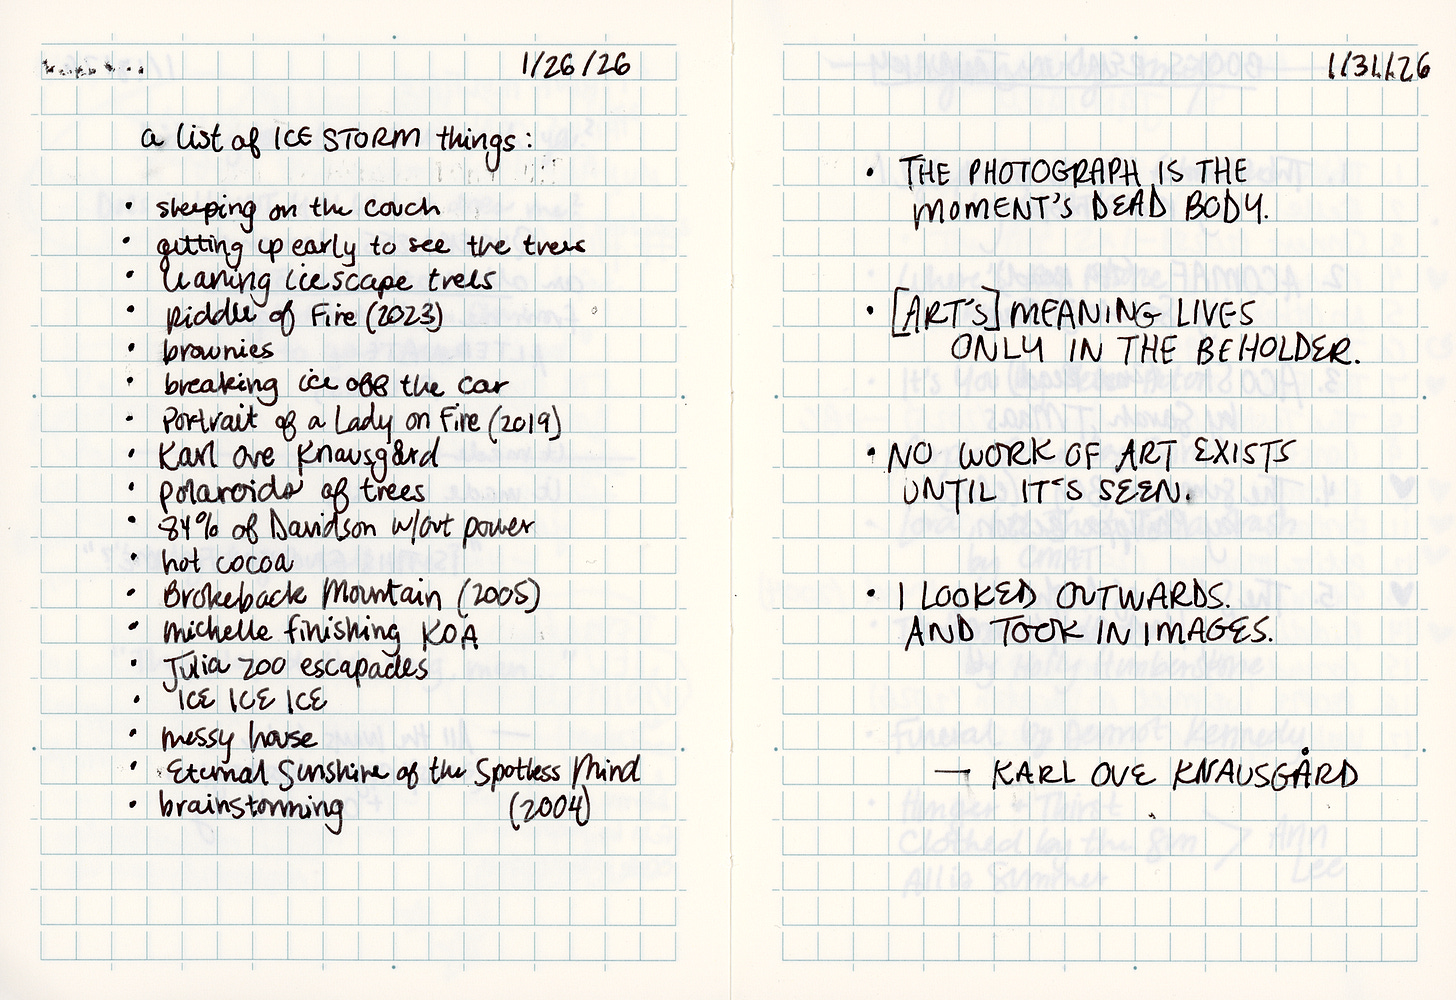 1/26/26
a list of ICE STORM things:
• sleeping on the couch
• getting up early to see the trees
• leaning icescape trees
• Riddle of Fire (2023)
• brownies
• breaking ice off the car
• Portrait of a Lady on Fire (2019)
• Karl Ove Knausgård
• polaroids of trees
• 84% of Davidson w/out power
• hot cocoa
• Brokeback Mountain (2005)
• michelle finishing KOA
• Julia 200 escapades
• ICE ICE ICE
• messy house
• Eternal Sunshine of the Spotless Mind
• brainstorming (2004)
1/31/26
• THE PHOTOGRAPH IS THE
MOMENT'S DEAD BODY.
• [ART'S] MEANING LIVES
ONLY IN THE BEHOLDER.
• NO WORK OF ART EXISTS
UNTIL IT'S SEEN.
• I LOOKED OUTWARDS.
AND TOOK IN IMAGES.
— KARL OVE KNAUSGÅRD
Funeral by Dermot Kennedy
• Hunger + Thirst
Clothed by the Sun > Ann
All is Summer Lee